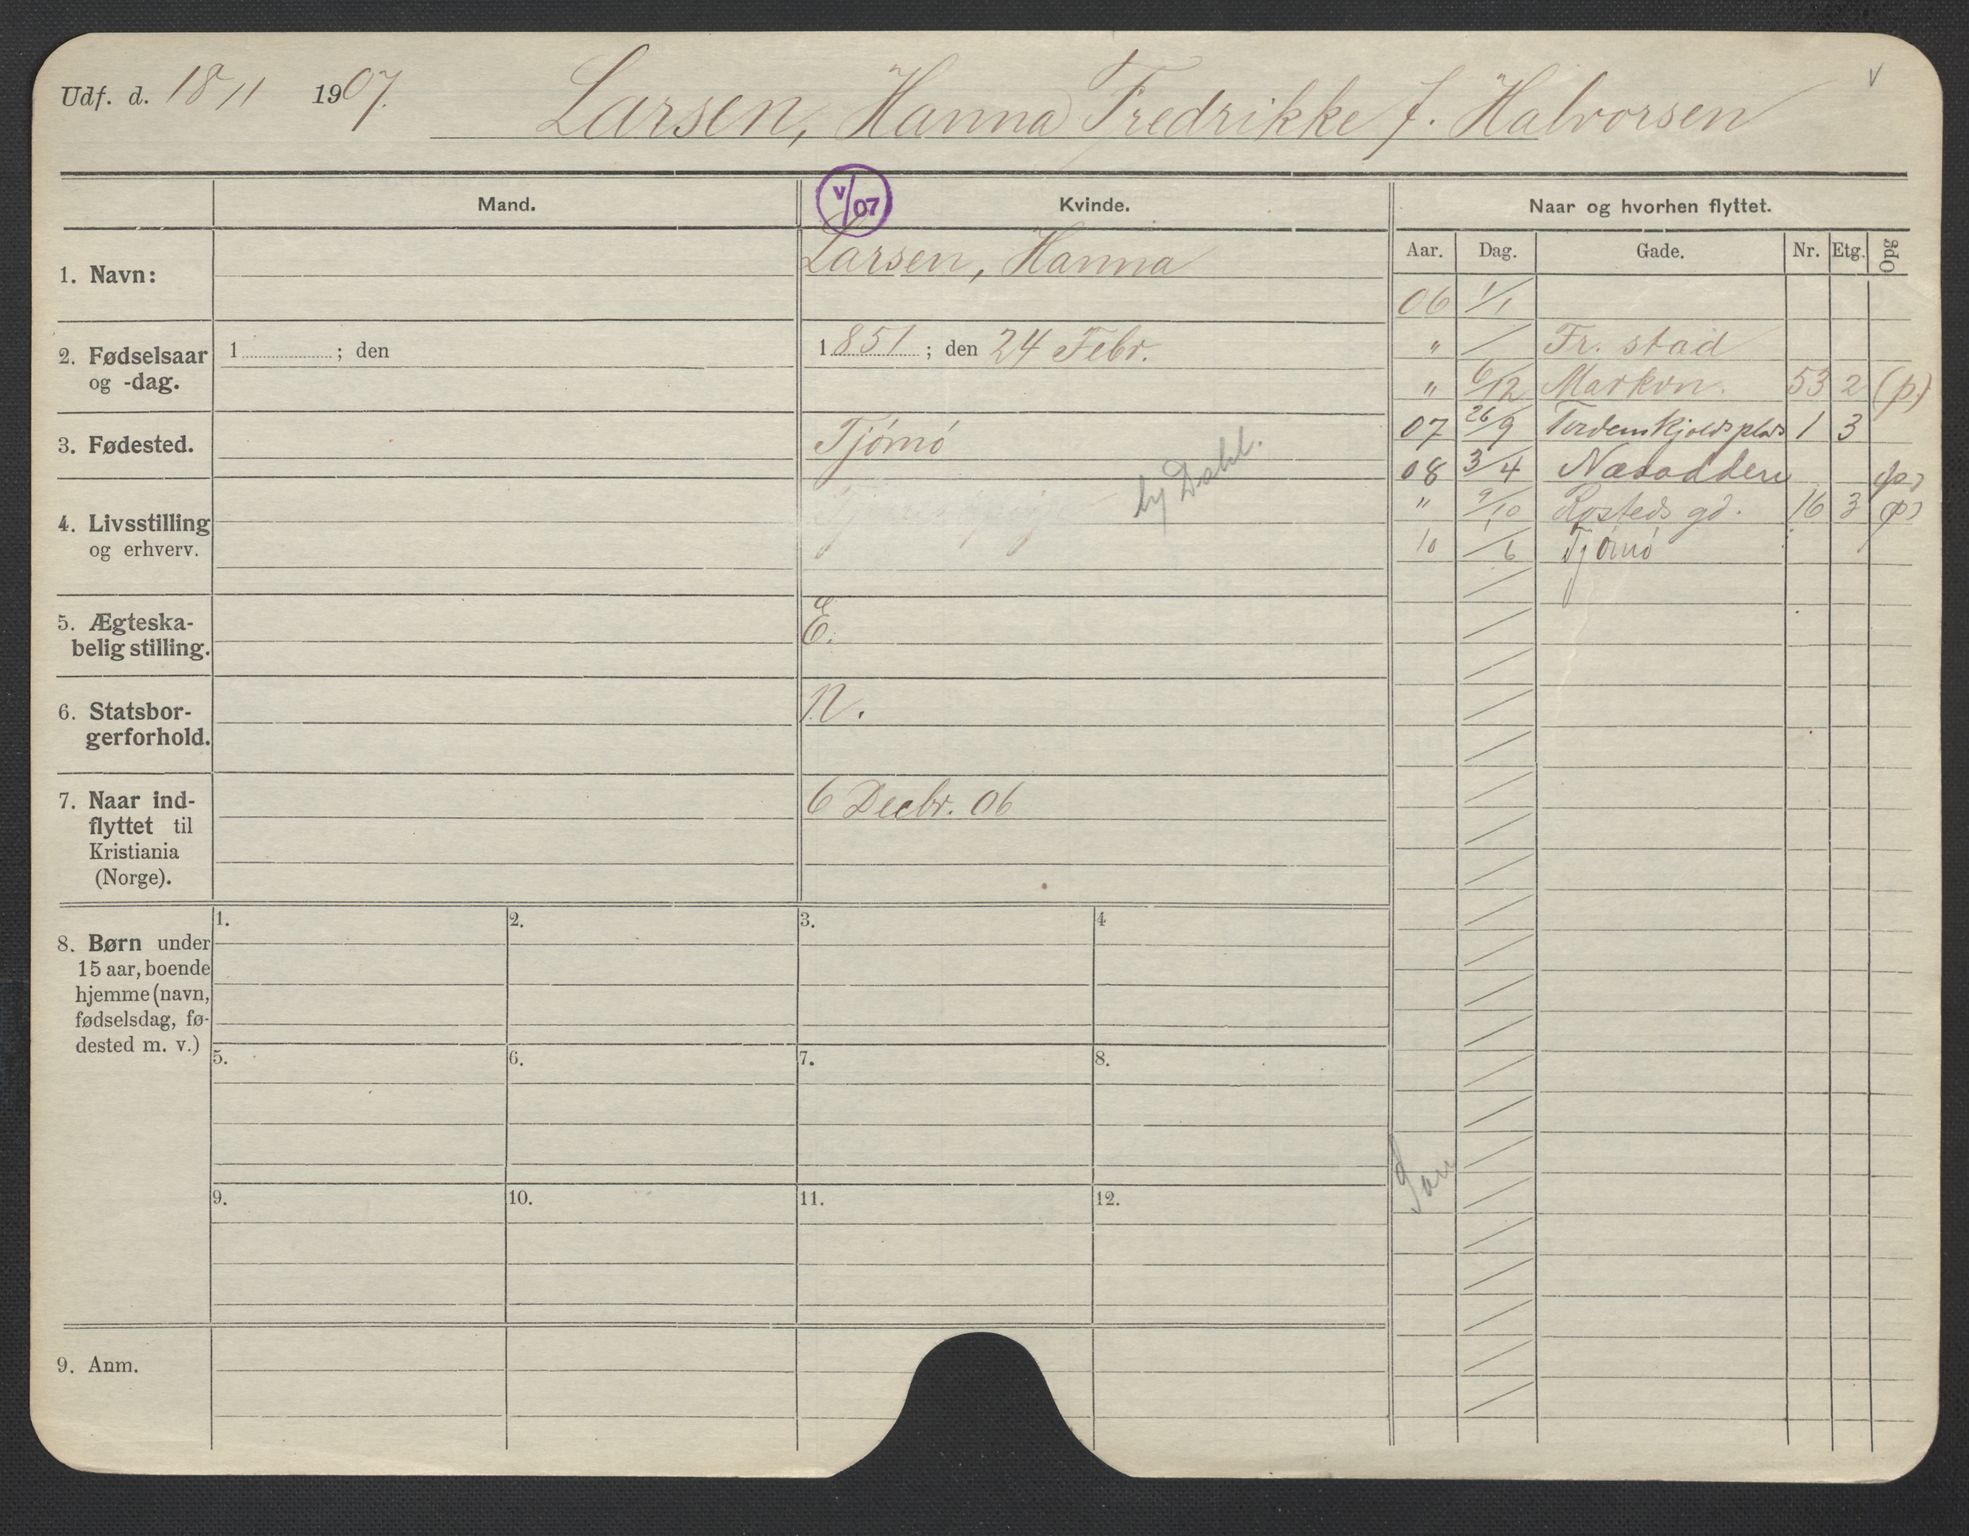 Udf. d. 18/11 1907. Larsen, Hanna Fredrikke f. Halvorsen v
Mand. v/07 Kvinde. Naar og hvorhen flyttet.
Aar. Dag. Gade. Nr. Etg. Opg
1. Navn: Larsen, Hanna
06 1/1
2. Fødselsaar og -dag. 1 ; den 1851 ; den 24 Febr.
" / Fr. stad
" 6/12 Markvn. 53 2 (p.)
3. Fødested. Tjömö
07 26/9 Tordenskjoldsplads 1 3
08 3/4 Næsodden (p.)
4. Livsstilling og erhverv. by Dahl.
" 9/10 Rosteds gd. 16 3 (p)
10 /6 Tjömö
5. Ægteska-
belig stilling. E.
6. Statsbor-
gerforhold. N.
7. Naar ind-
flyttet til
Kristiania
(Norge). 6 Decbr. 06
8. Børn under
15 aar, boende
hjemme (navn,
fødselsdag, fø-
dested m. v.)
1. 2. 3. 4
5. 6. 7. 8.
9. 10. 11. 12.
9. Anm.